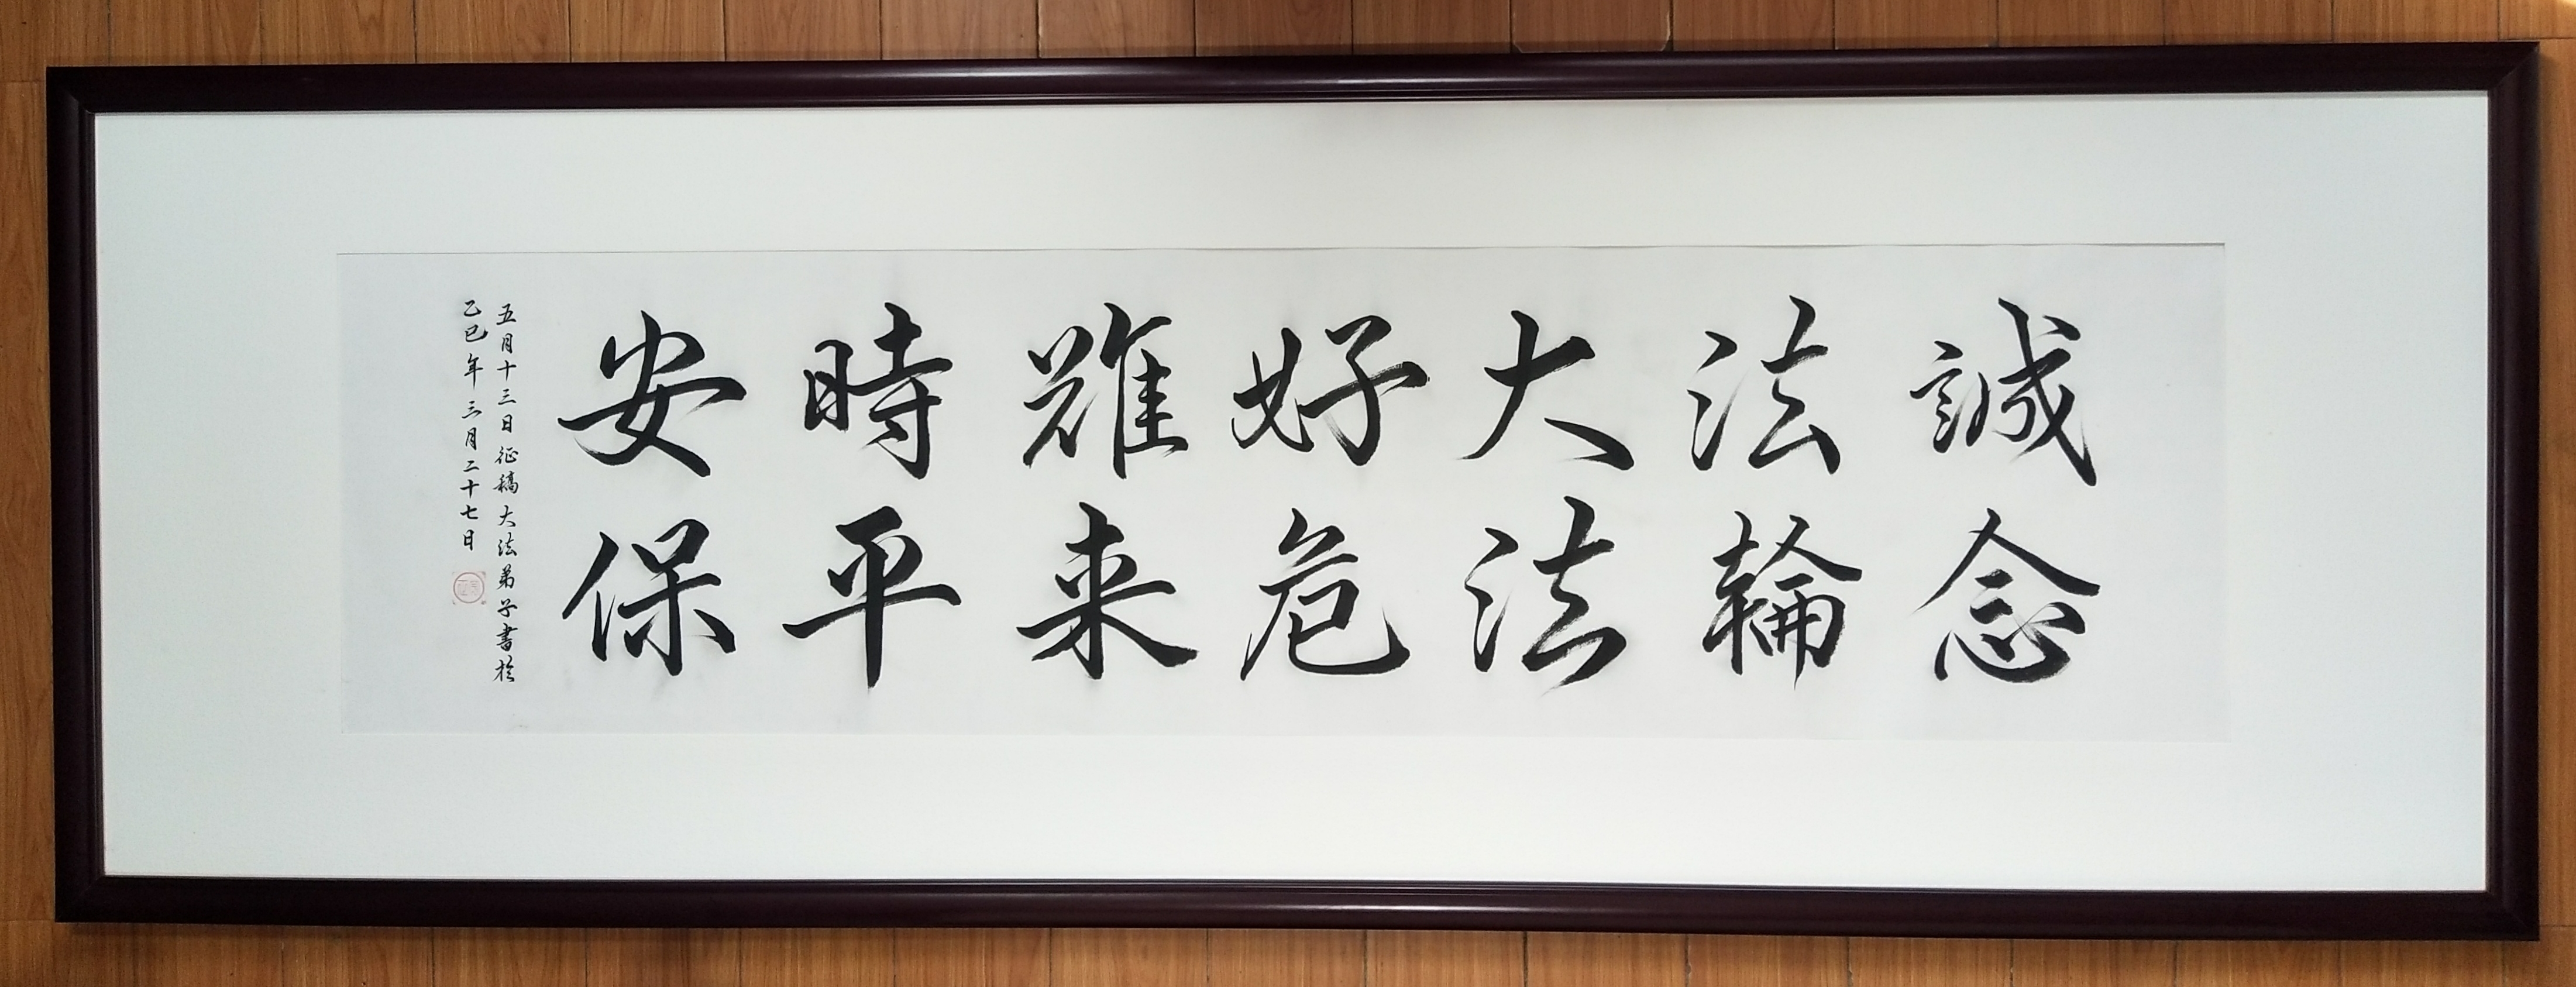 誠念
法輪
大法
好危
難来
時平
安保
五月十三日征稿大法弟子書於
乙巳年三月二十七日